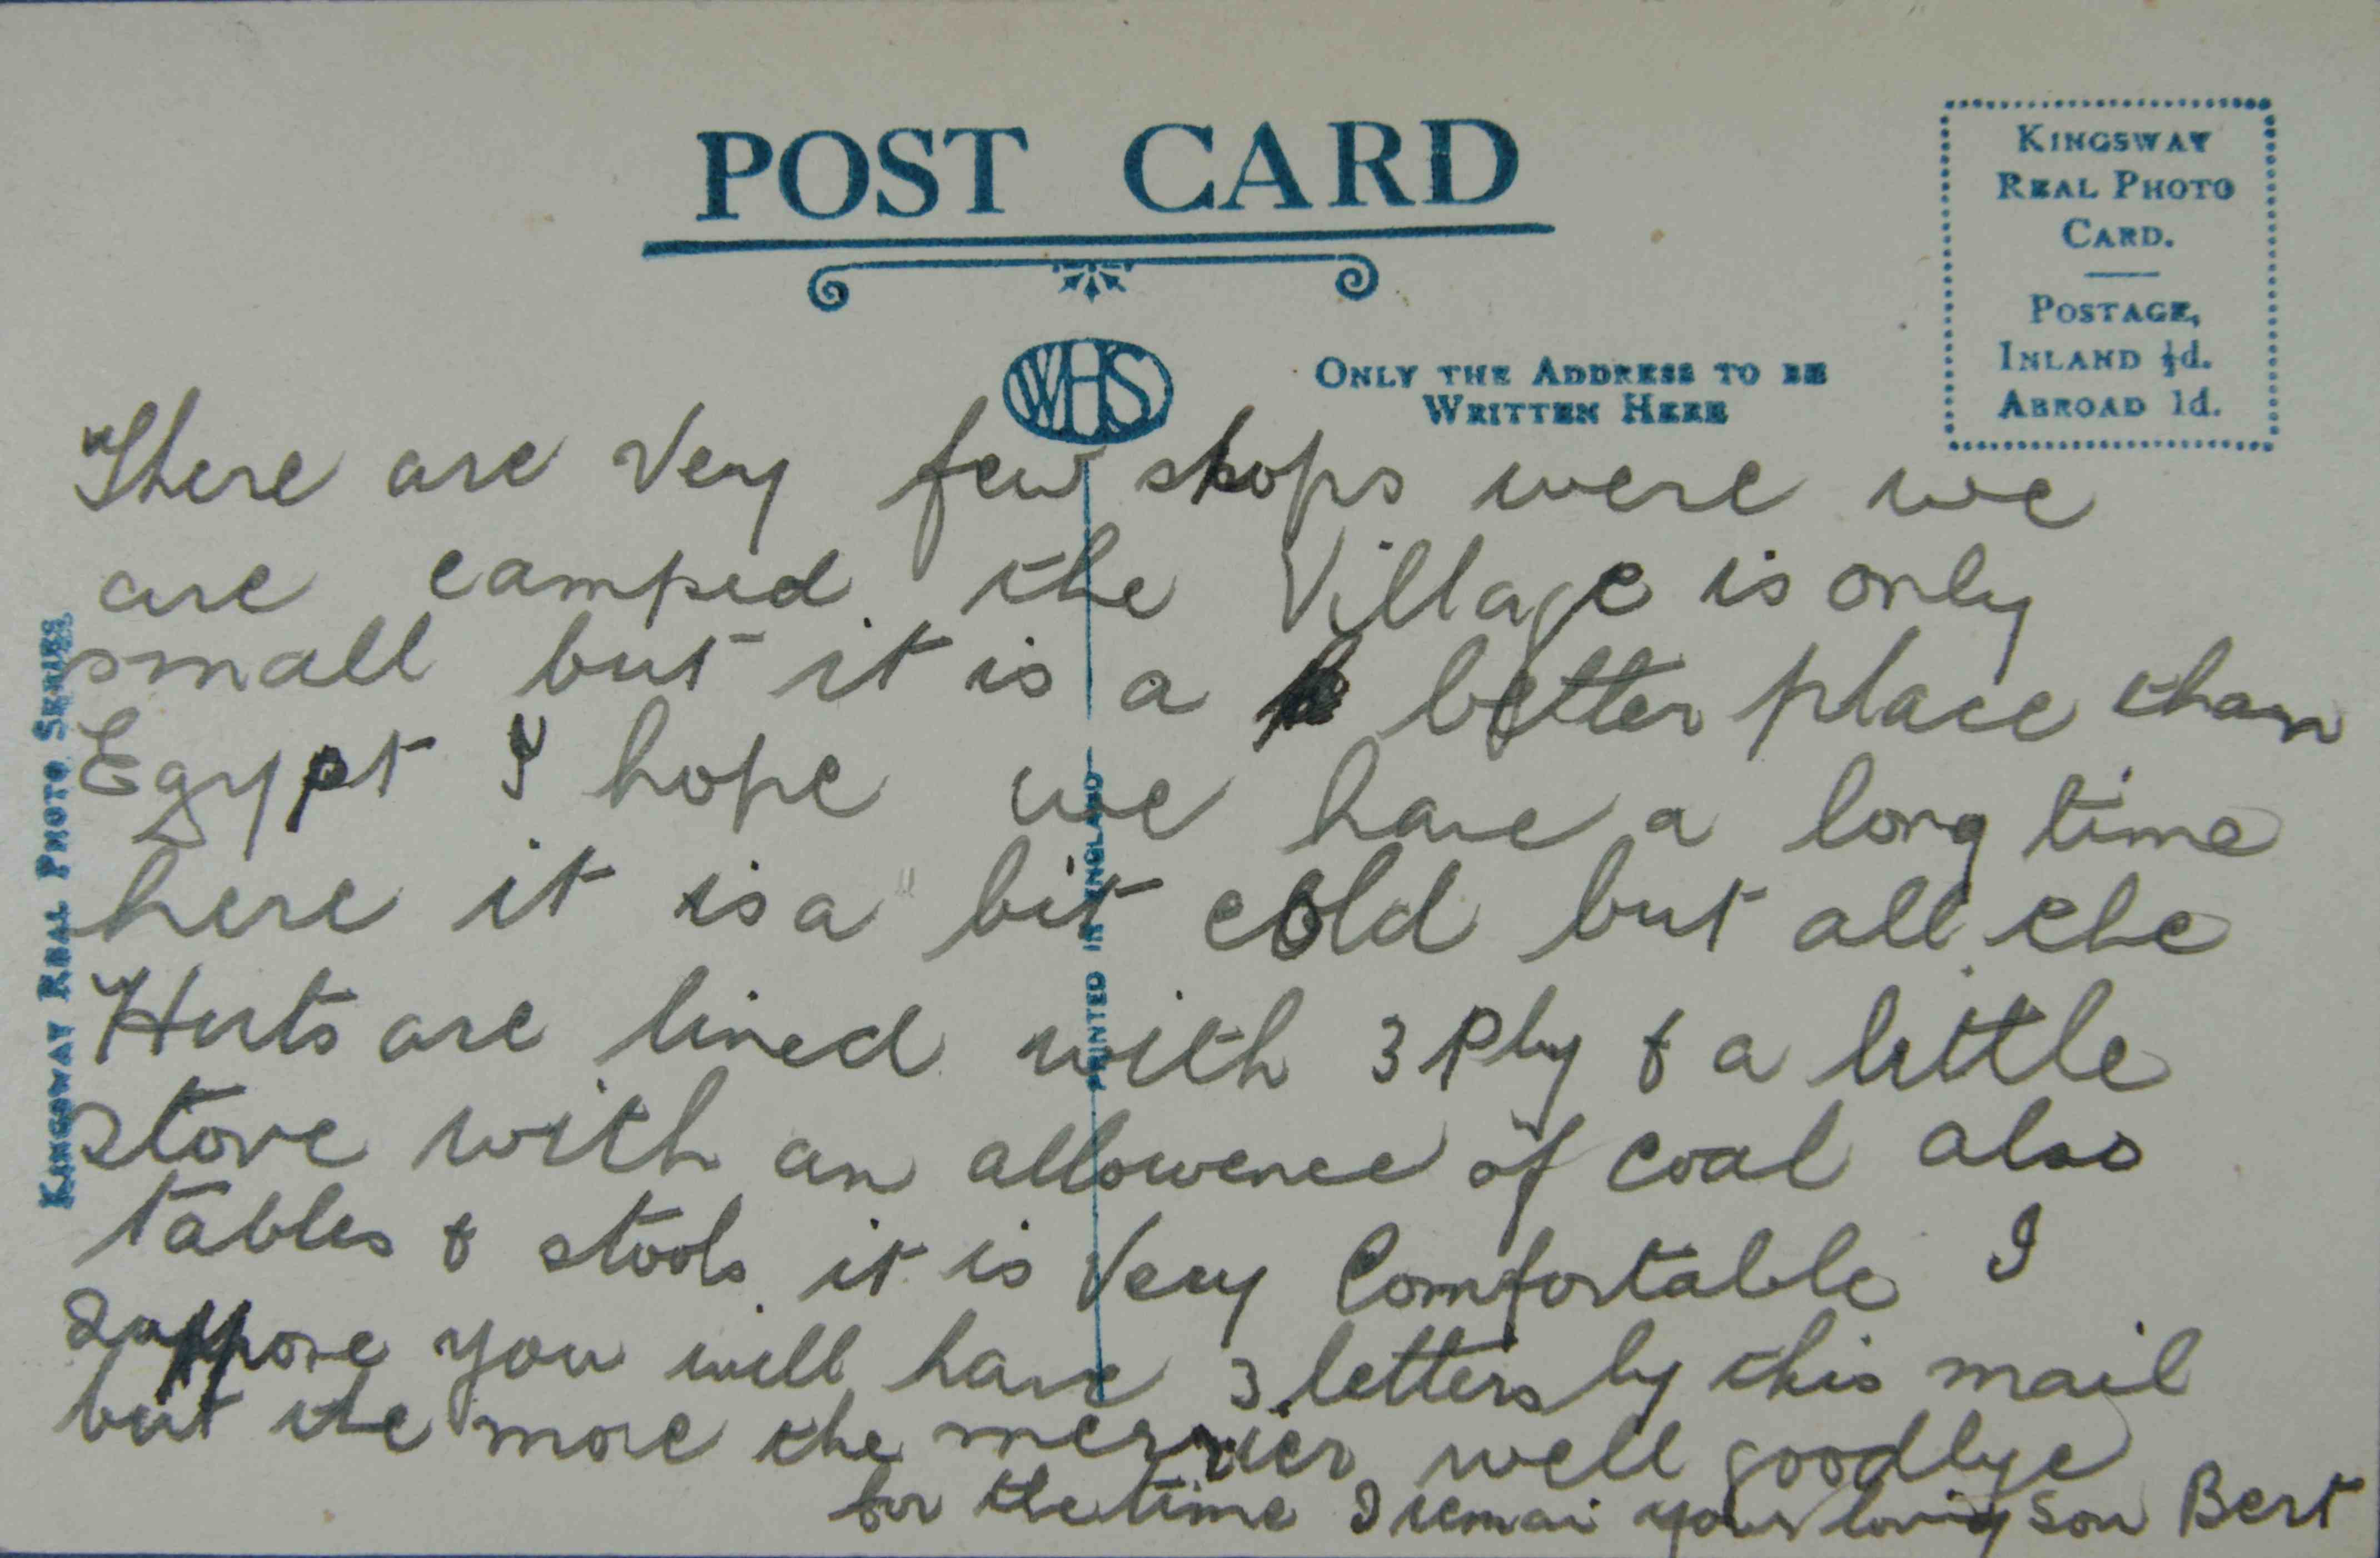 POST CARD
KINGSWAY
REAL PHOTO
CARD.
POSTAGE,
INLAND ½d.
ABROAD 1d.
WHS
ONLY THE ADDRESS TO BE
WRITTEN HERE
KINGSWAY REAL PHOTO SERIES
PRINTED IN ENGLAND
There are Very few shops were we
are camped the Village is only
small but it is a better place than
Egypt I hope we have a long time
here it is a bit cold but all the
Huts are lined with 3 Ply & a little
stove with an allowence of coal also
tables & stools it is Very Comfortable I
Suppose you will have 3 letters by this mail
but the more the merrier well goodbye
for the time I remai your loving Son Bert